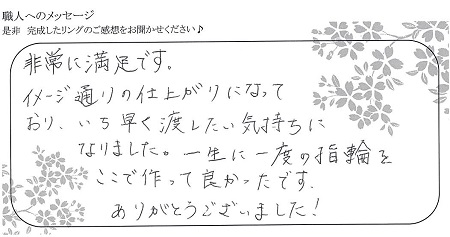 職人へのメッセージ
是非 完成したリングのご感想をお聞かせください♪
非常に満足です。
イメージ通りの仕上がりになって
おり、いち早く渡したい気持ちに
なりました。一生に一度の指輪を
ここで作って良かったです.
ありがとうございました!